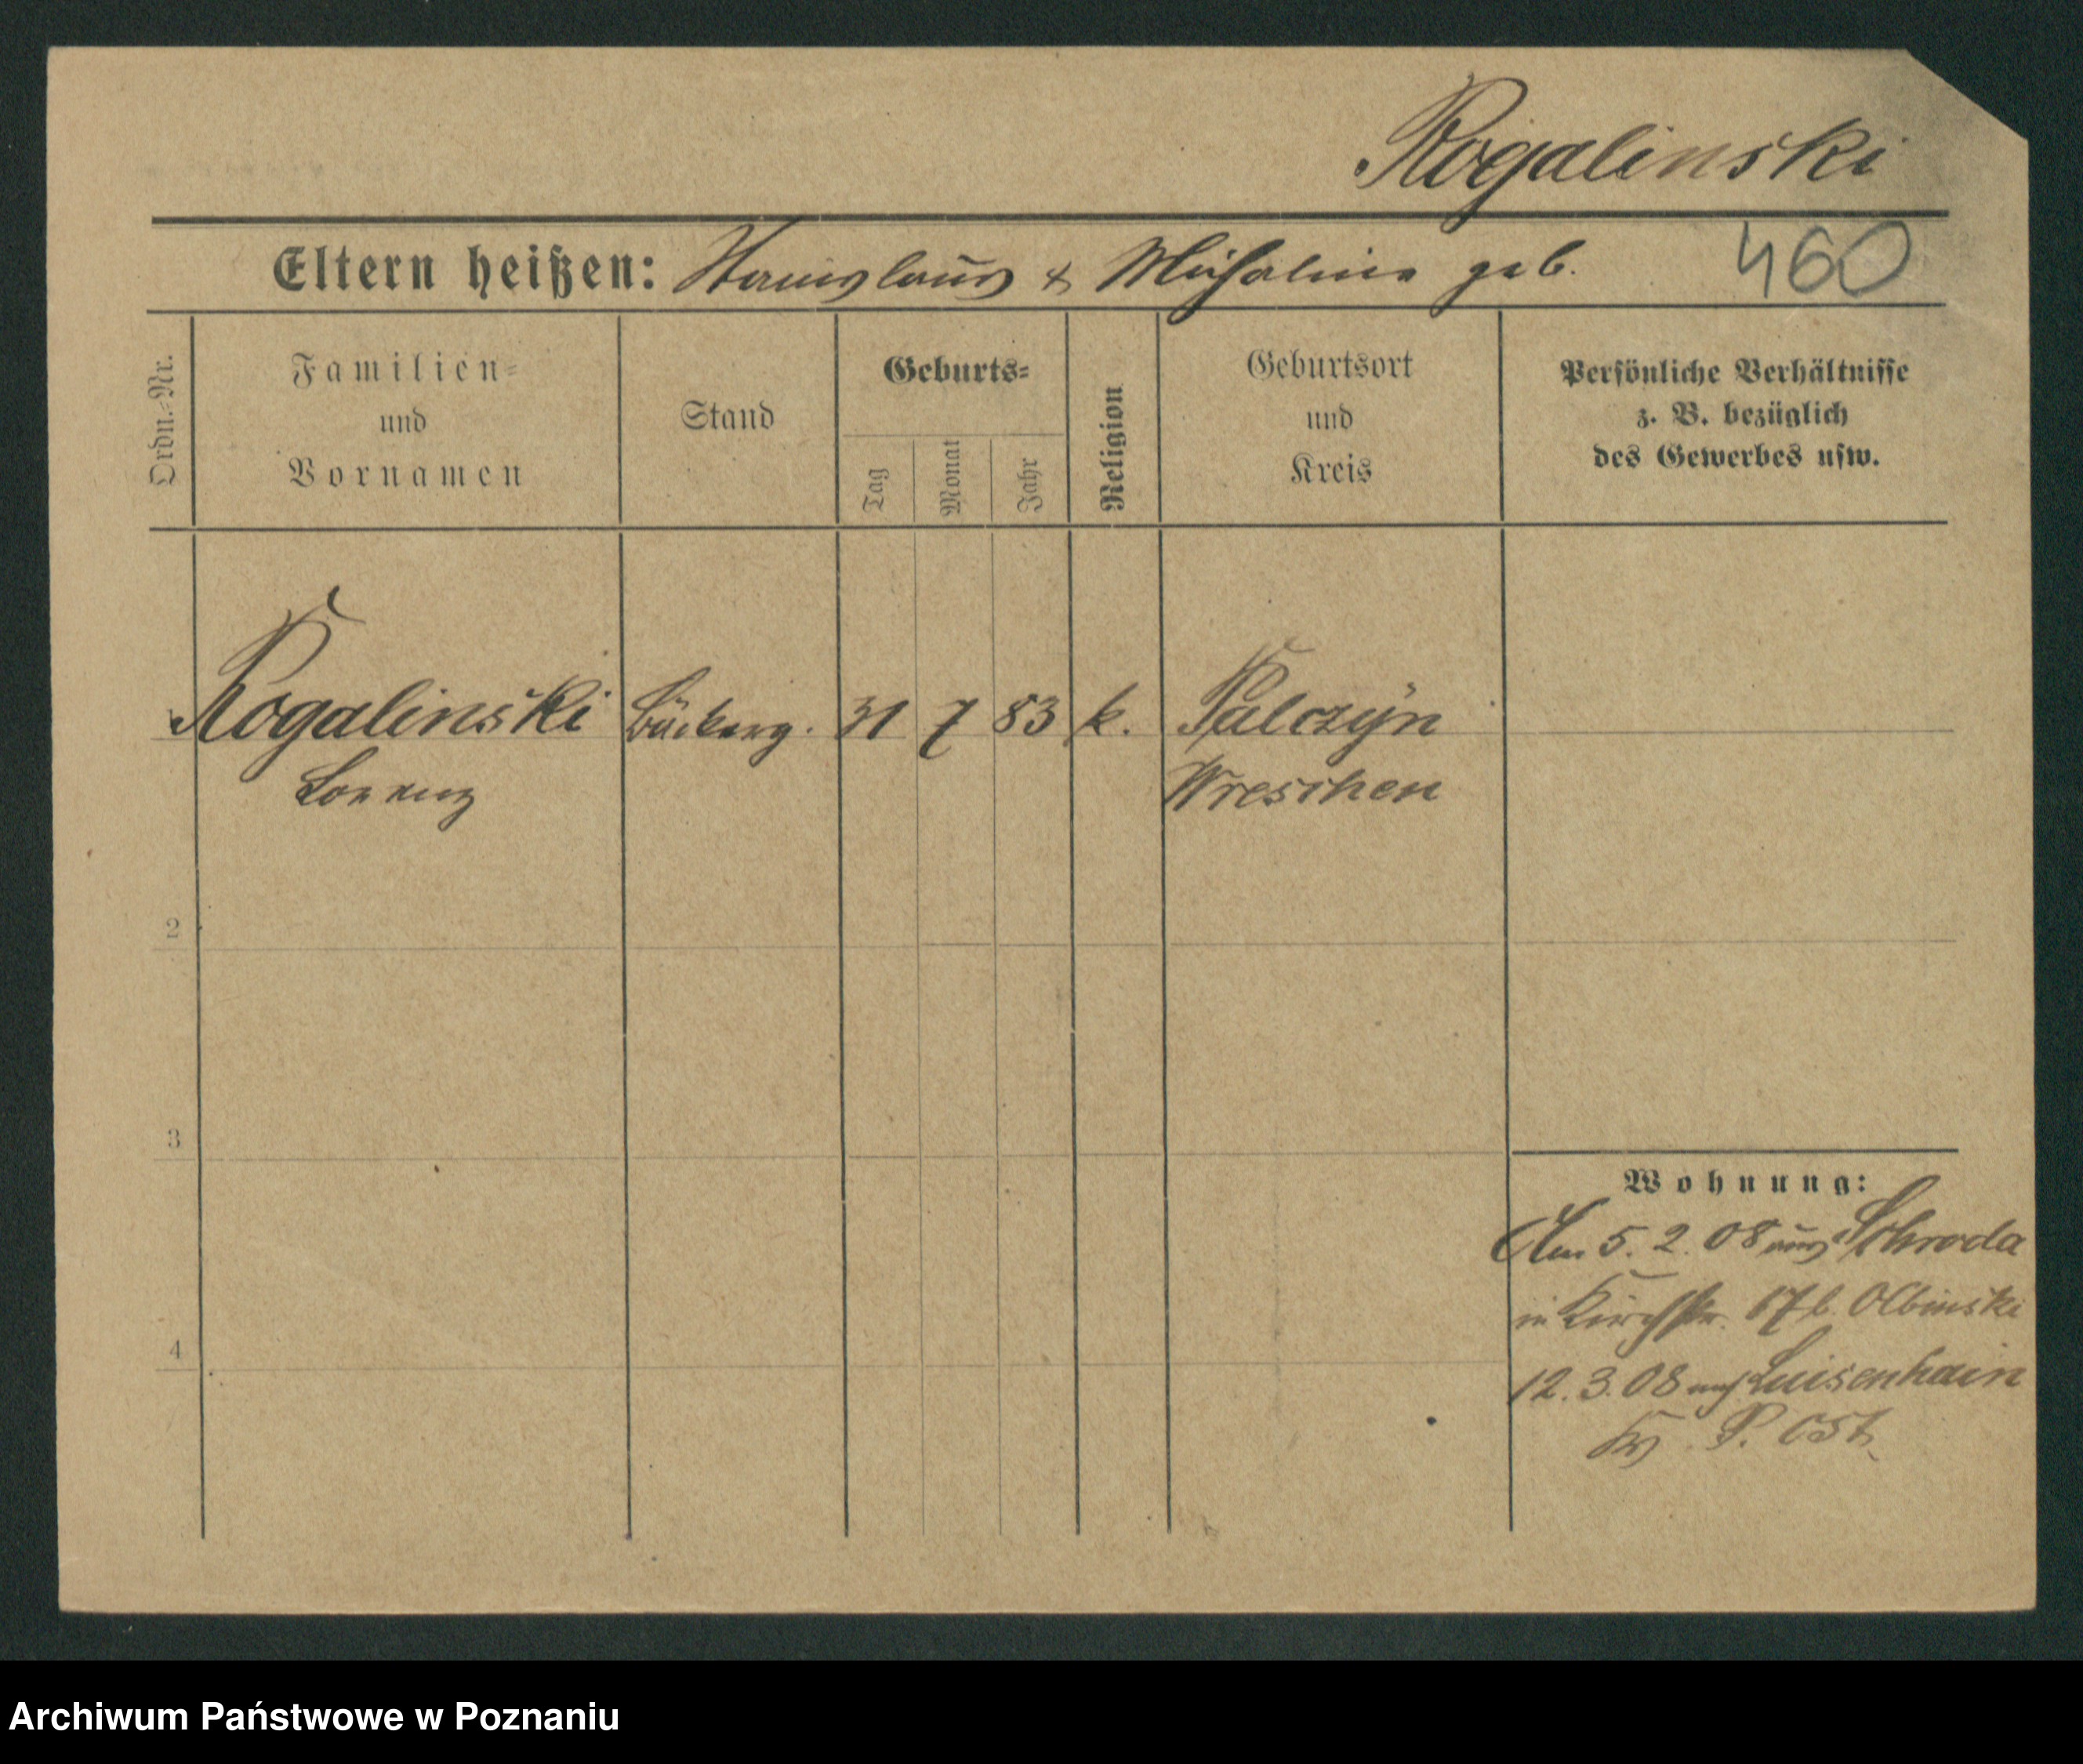 Rogalinski
Eltern heißen: Stanislaus & Michalina geb. 460
Ordn.-Nr.
Familien=
und
Vornamen
Stand
Geburts=
Tag
Monat
Jahr
Religion
Geburtsort
und
Kreis
Persönliche Verhältnisse
z. B. bezüglich
des Gewerbes usw.
Rogalinski Bäckerg. 31 7 83 k. Palczyn
Lorenz Wreschen
2
3
4
Wohnung:
Am 5. 2. 08 aus Schroda
in Kirchstr. 67 b. Olbinski
12. 3. 08 nach Luisenhain
P. Ost
Archiwum Państwowe w Poznaniu